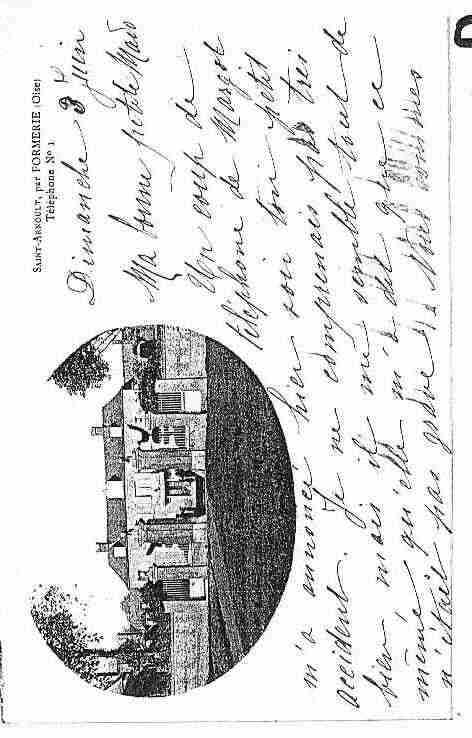 SAINT-ARNOULT, par FORMERIE (Oise)
Téléphone N° 1
Dimanche 8 Juin
Ma bonne petite Mado
Un coup de
téléphone de Margot
m'a annoncé hier soir ton petit
accident. Je ne comprenais pas très
bien mais il me semble tout de
même qu'elle m'a dit que ce
n'était pas grave Nous sommes